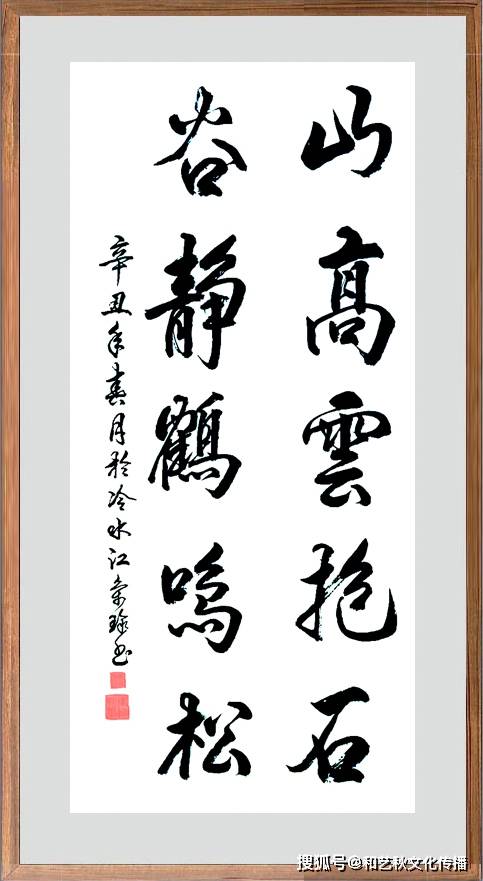 山高雲抱石
谷靜鶴鳴松
辛丑年春月於冷水江
搜狐号@和艺秋文化传播